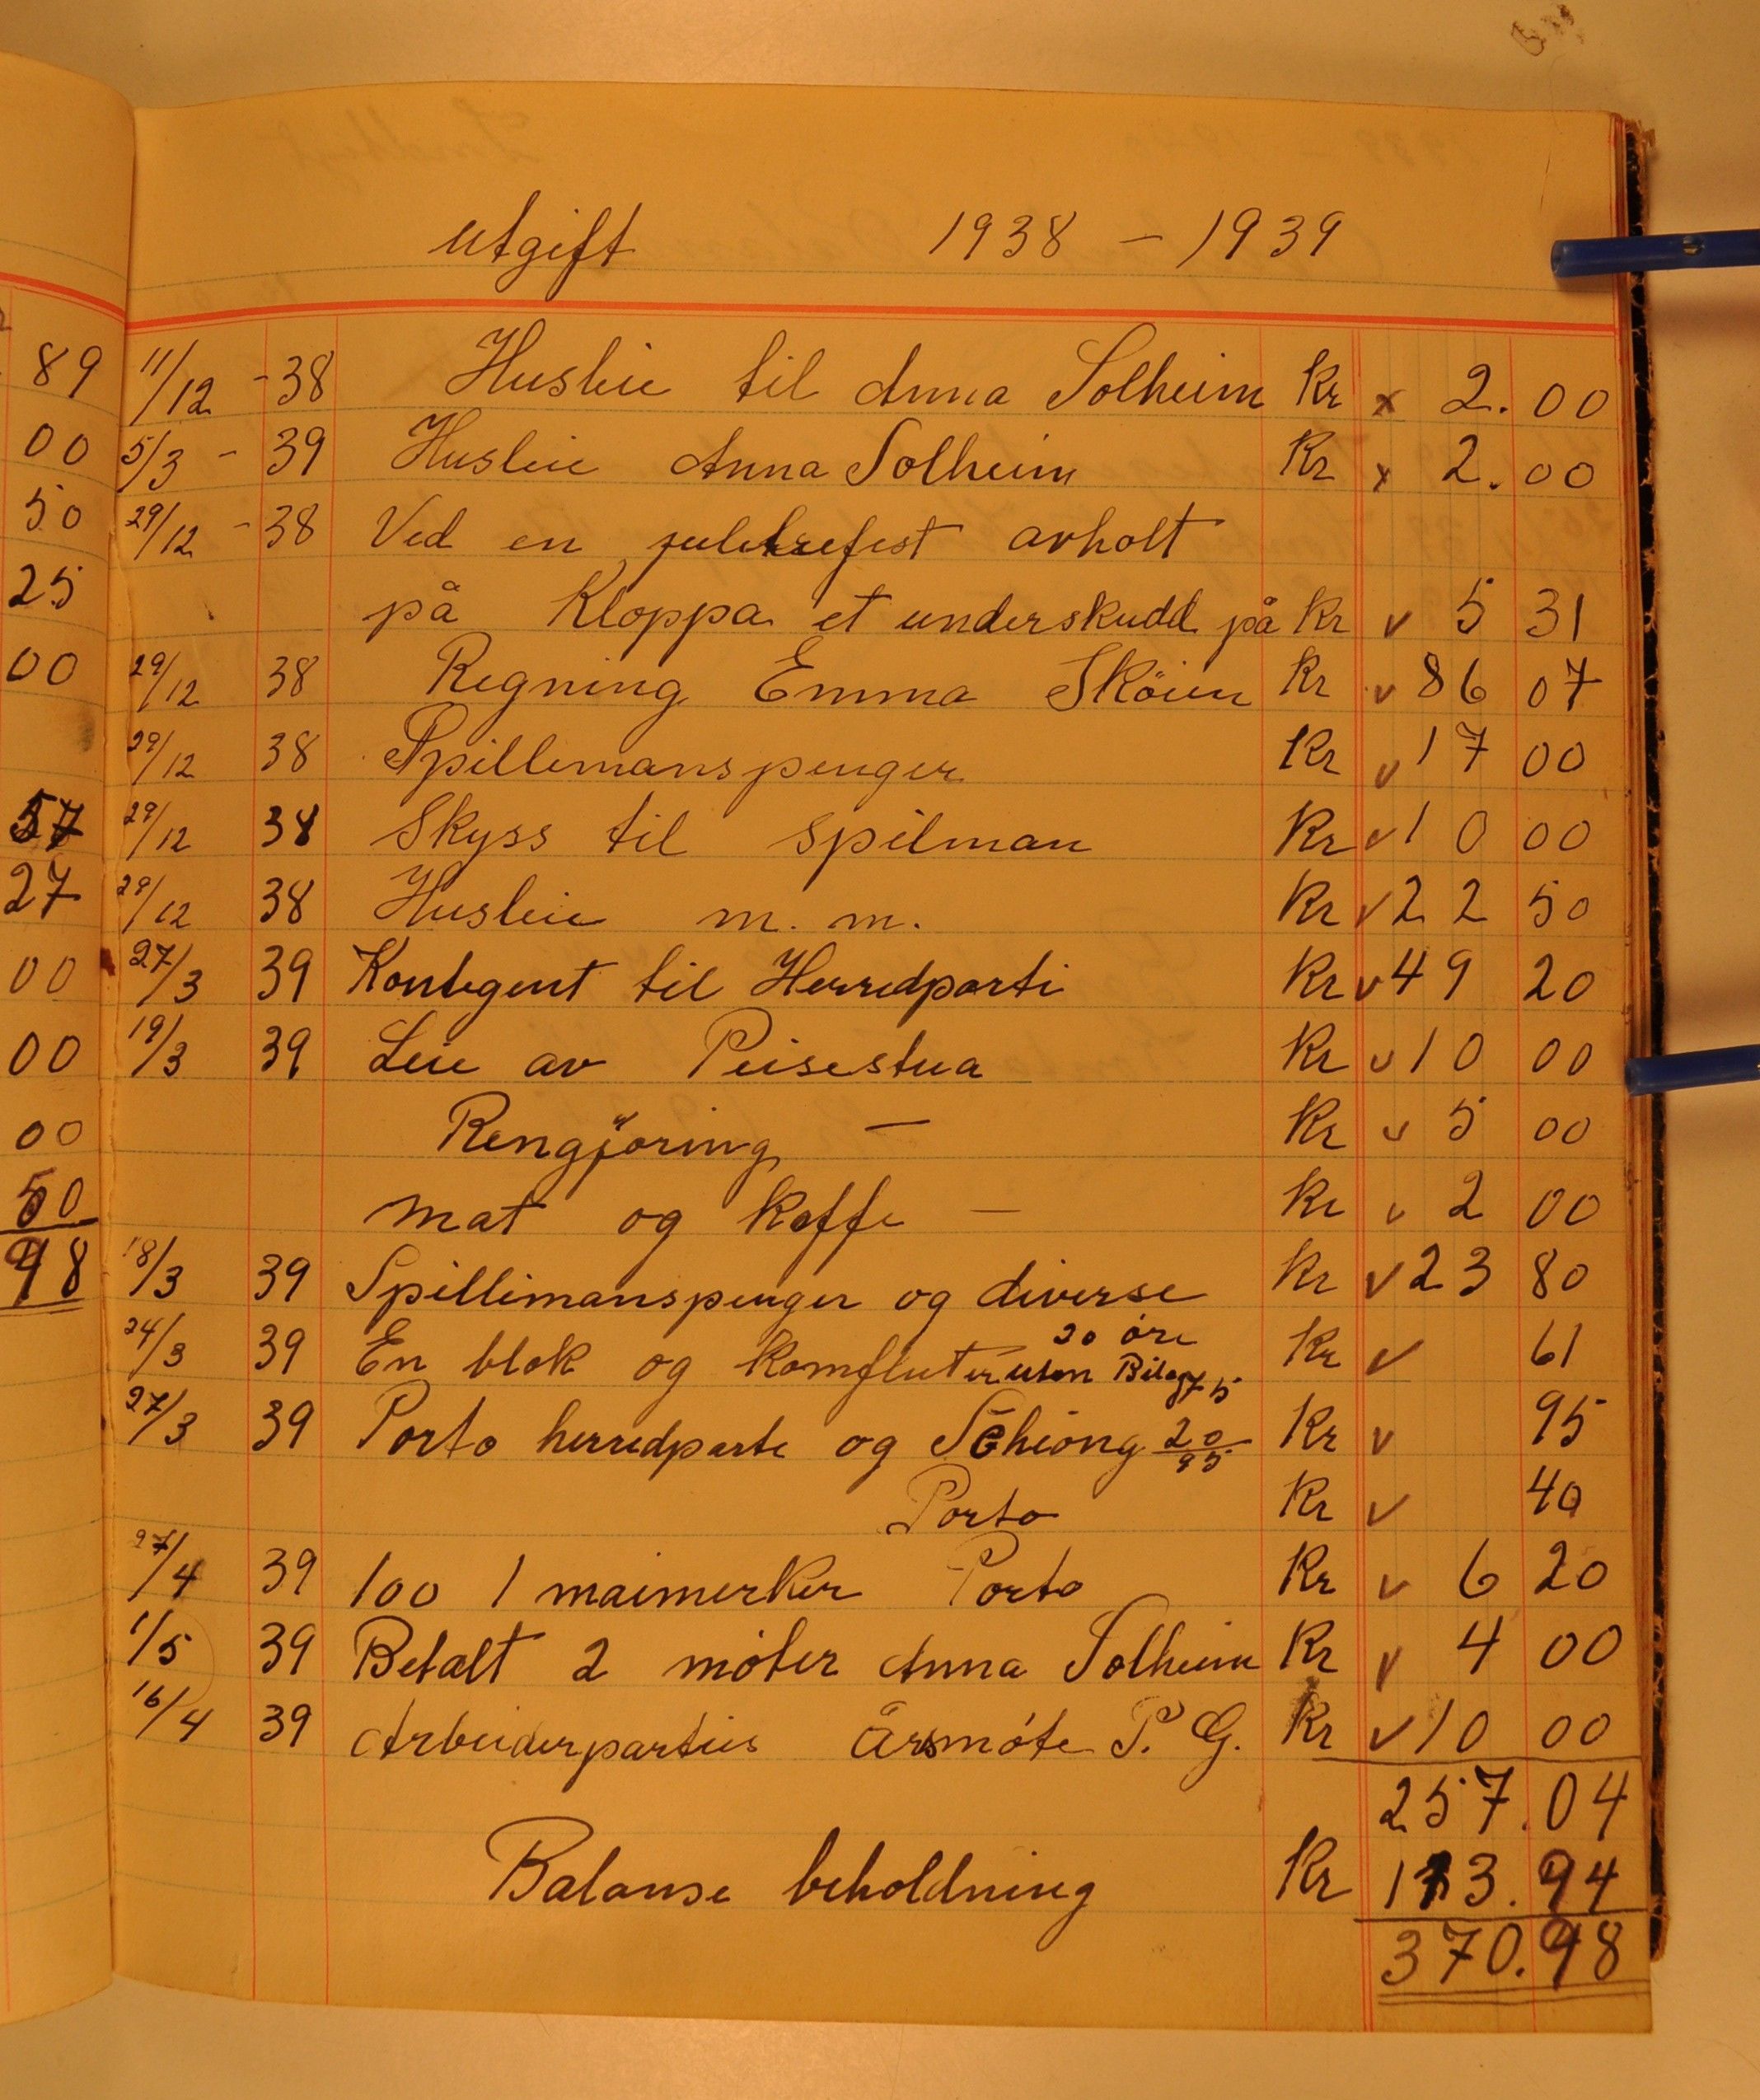 utgift 1938 - 1939
89
00
50
25
00
57
27
00
00
00
50
98
11/12 - 38 Husleie til Anna Solheim Kr x 2.00
5/3 - 39 Husleie Anna Solheim Kr x 2.00
29/12 - 38 Ved en juletrefest avholt
på Kloppa et underskudd på Kr v 5 31
29/12 38 Regning Emma Sköien Kr v 86 07
29/12 38 Spillemanspenger Kr v 17 00
29/12 38 Skyss til spilman Kr v 10 00
29/12 38 Husleie m. m. Kr v 22 50
27/3 39 Kontegent til Herredparti Kr v 49 20
19/3 39 Leie av Peisestua Kr v 10 00
Rengjöring — Kr v 5 00
mat og kaffe — Kr v 2 00
18/3 39 Spillimanspenger og diverse Kr v 23 80
20 öre
24/3 39 En blok og Komfluter uten Bilag Kr v 61
75
27/3 39 Porto herredparte og Schiong 20 Kr v 95
95
Porto Kr v 40
27/4 39 100 1 maimerker Porto Kr v 6 20
1/5 39 Betalt 2 möter Anna Solheim Kr v 4 00
16/4 39 Arbeiderpartiis Årsmöte P. G. Kr v 10 00
257.04
Balanse beholdning Kr 113.94
370.98